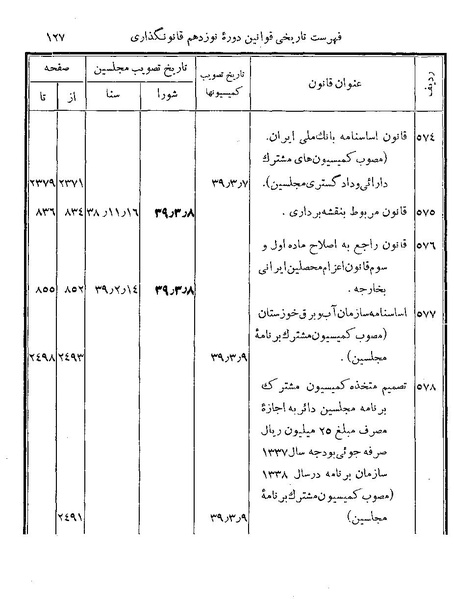 فهرست تاریخی قوانین دورهٔ نوزدهم قانونگذاری ۱۲۷
ردیف عنوان قانون تاریخ تصویب کمیسیونها تاریخ تصویب مجلسین صفحه
شورا سنا از تا
۵۷۴ قانون اساسنامه بانک ملی ایران.
(مصوب کمیسیون‌های مشترک
دارائی و دادگستری مجلسین). ۳۹٫۳٫۷ ۲۳۷۱ ۲۳۷۹
۵۷۵ قانون مربوط بنقشه‌برداری. ۳۹٫۳٫۸ ۳۸٫۱۱٫۱۶ ۸۳٤ ۸۳۶
۵۷۶ قانون راجع به اصلاح ماده اول و
سوم قانون اعزام محصلین ایرانی
بخارجه. ۳۹٫۳٫۸ ۳۹٫۲٫۱٤ ۸۵۲ ۸۵۵
۵۷۷ اساسنامه سازمان آب و برق خوزستان
(مصوب کمیسیون مشترک برنامهٔ
مجلسین). ۳۹٫۳٫۹ ۲٤۹۳ ۲٤۹۸
۵۷۸ تصمیم متخذه کمیسیون مشترک
برنامه مجلسین دائر به اجازهٔ
مصرف مبلغ ۲۵ میلیون ریال
صرفه جوئی بودجه سال ۱۳۳۷
سازمان برنامه در سال ۱۳۳۸
(مصوب کمیسیون مشترک برنامهٔ
مجلسین) ۳۹٫۳٫۹ ۲٤۹۱